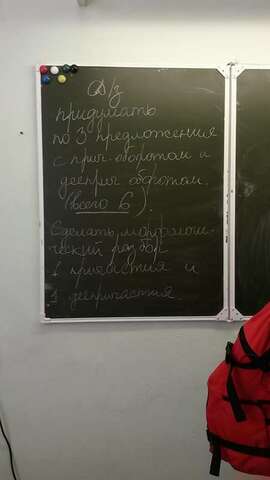 Д/з
придумать
по 3 предложения
с прич. оборотом и
дееприч. оборотом.
(всего 6).
Сделать морфологи-
ческий разбор
1 причастия и
1 деепричастия.